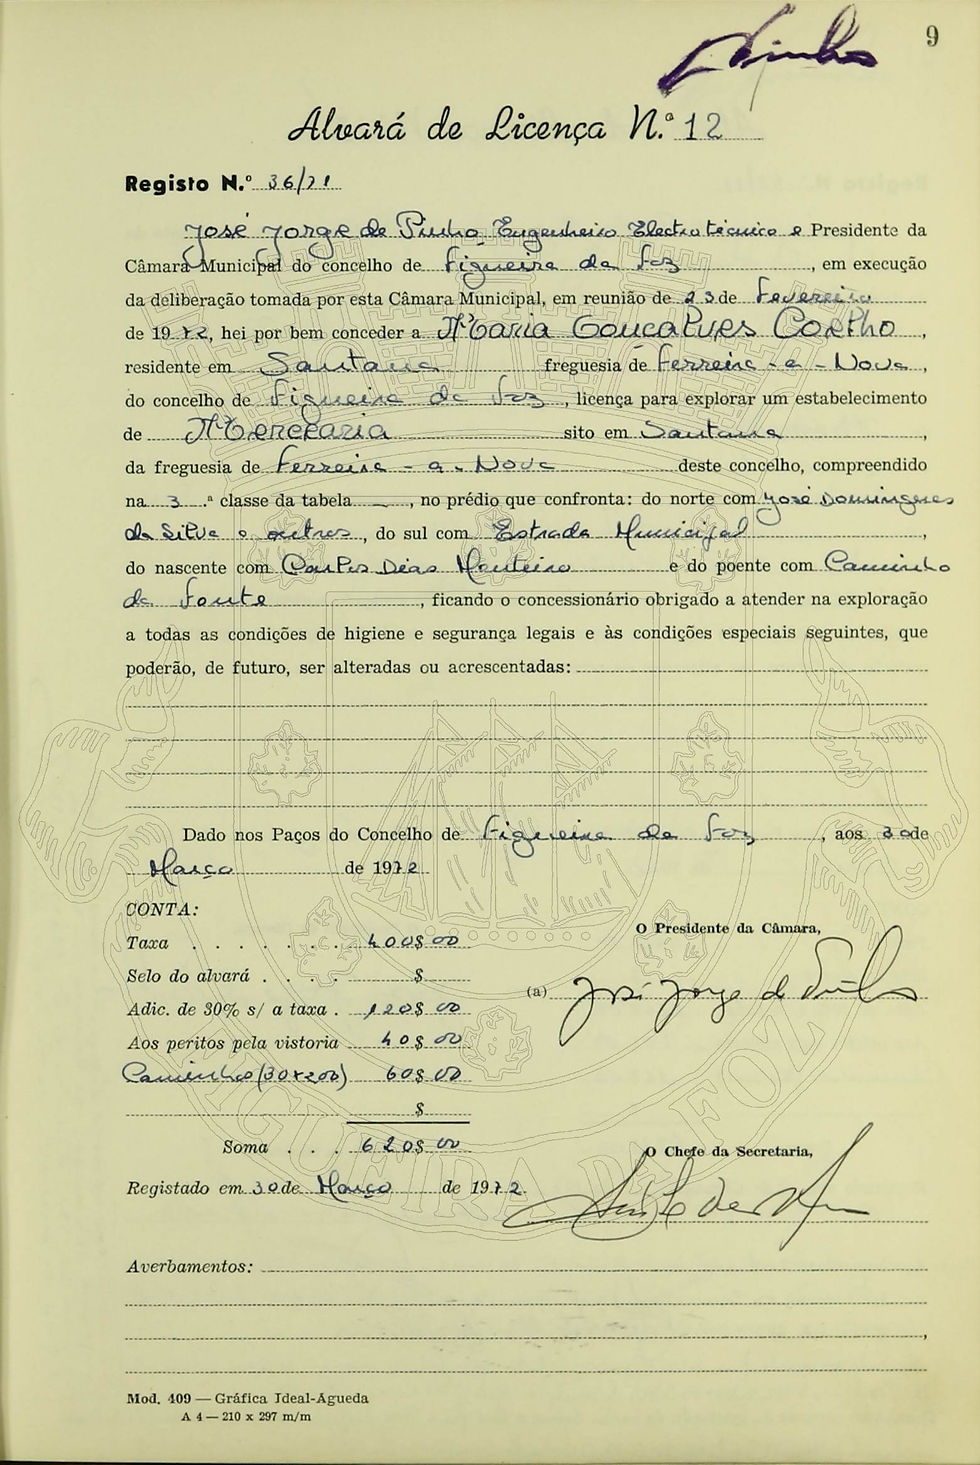 9
Pinho
Alvará de Licença N.º 12
Registo N.º 36/71
José Jorge de Pinho, Engenheiro Electrotécnico e Presidente da
Câmara Municipal do concelho de Figueira da Foz, em execução
da deliberação tomada por esta Câmara Municipal, em reunião de 23 de Fevereiro
de 1972, hei por bem conceder a Maria Gonçalves Coelho,
residente em Santana freguesia de Ferreira-a-Nova,
do concelho de Figueira da Foz, licença para explorar um estabelecimento
de Mercearia sito em Santana,
da freguesia de Ferreira-a-Nova deste concelho, compreendido
na 3.ª classe da tabela —, no prédio que confronta: do norte com José Domingues
da Silva e outros, do sul com Estrada Municipal,
do nascente com Carlos Dias Monteiro e do poente com Caminho
da Fonte, ficando o concessionário obrigado a atender na exploração
a todas as condições de higiene e segurança legais e às condições especiais seguintes, que
poderão, de futuro, ser alteradas ou acrescentadas:
Dado nos Paços do Concelho de Figueira da Foz, aos 30 de
Março de 1972
CONTA:
O Presidente da Câmara,
Taxa . . . . . . . 400$00
Selo do alvará . . . . $
(a) José Jorge de Pinho
Adic. de 30% s/ a taxa . 120$00
Aos peritos pela vistoria 40$00
Caminhos (30x200) 60$00
$
Soma . . . 620$00
O Chefe da Secretaria,
Registado em 30 de Março de 1972.
Averbamentos:
Mod. 409 — Gráfica Ideal-Águeda
A 4 — 210 x 297 m/m
FIGUEIRA DA FOZ